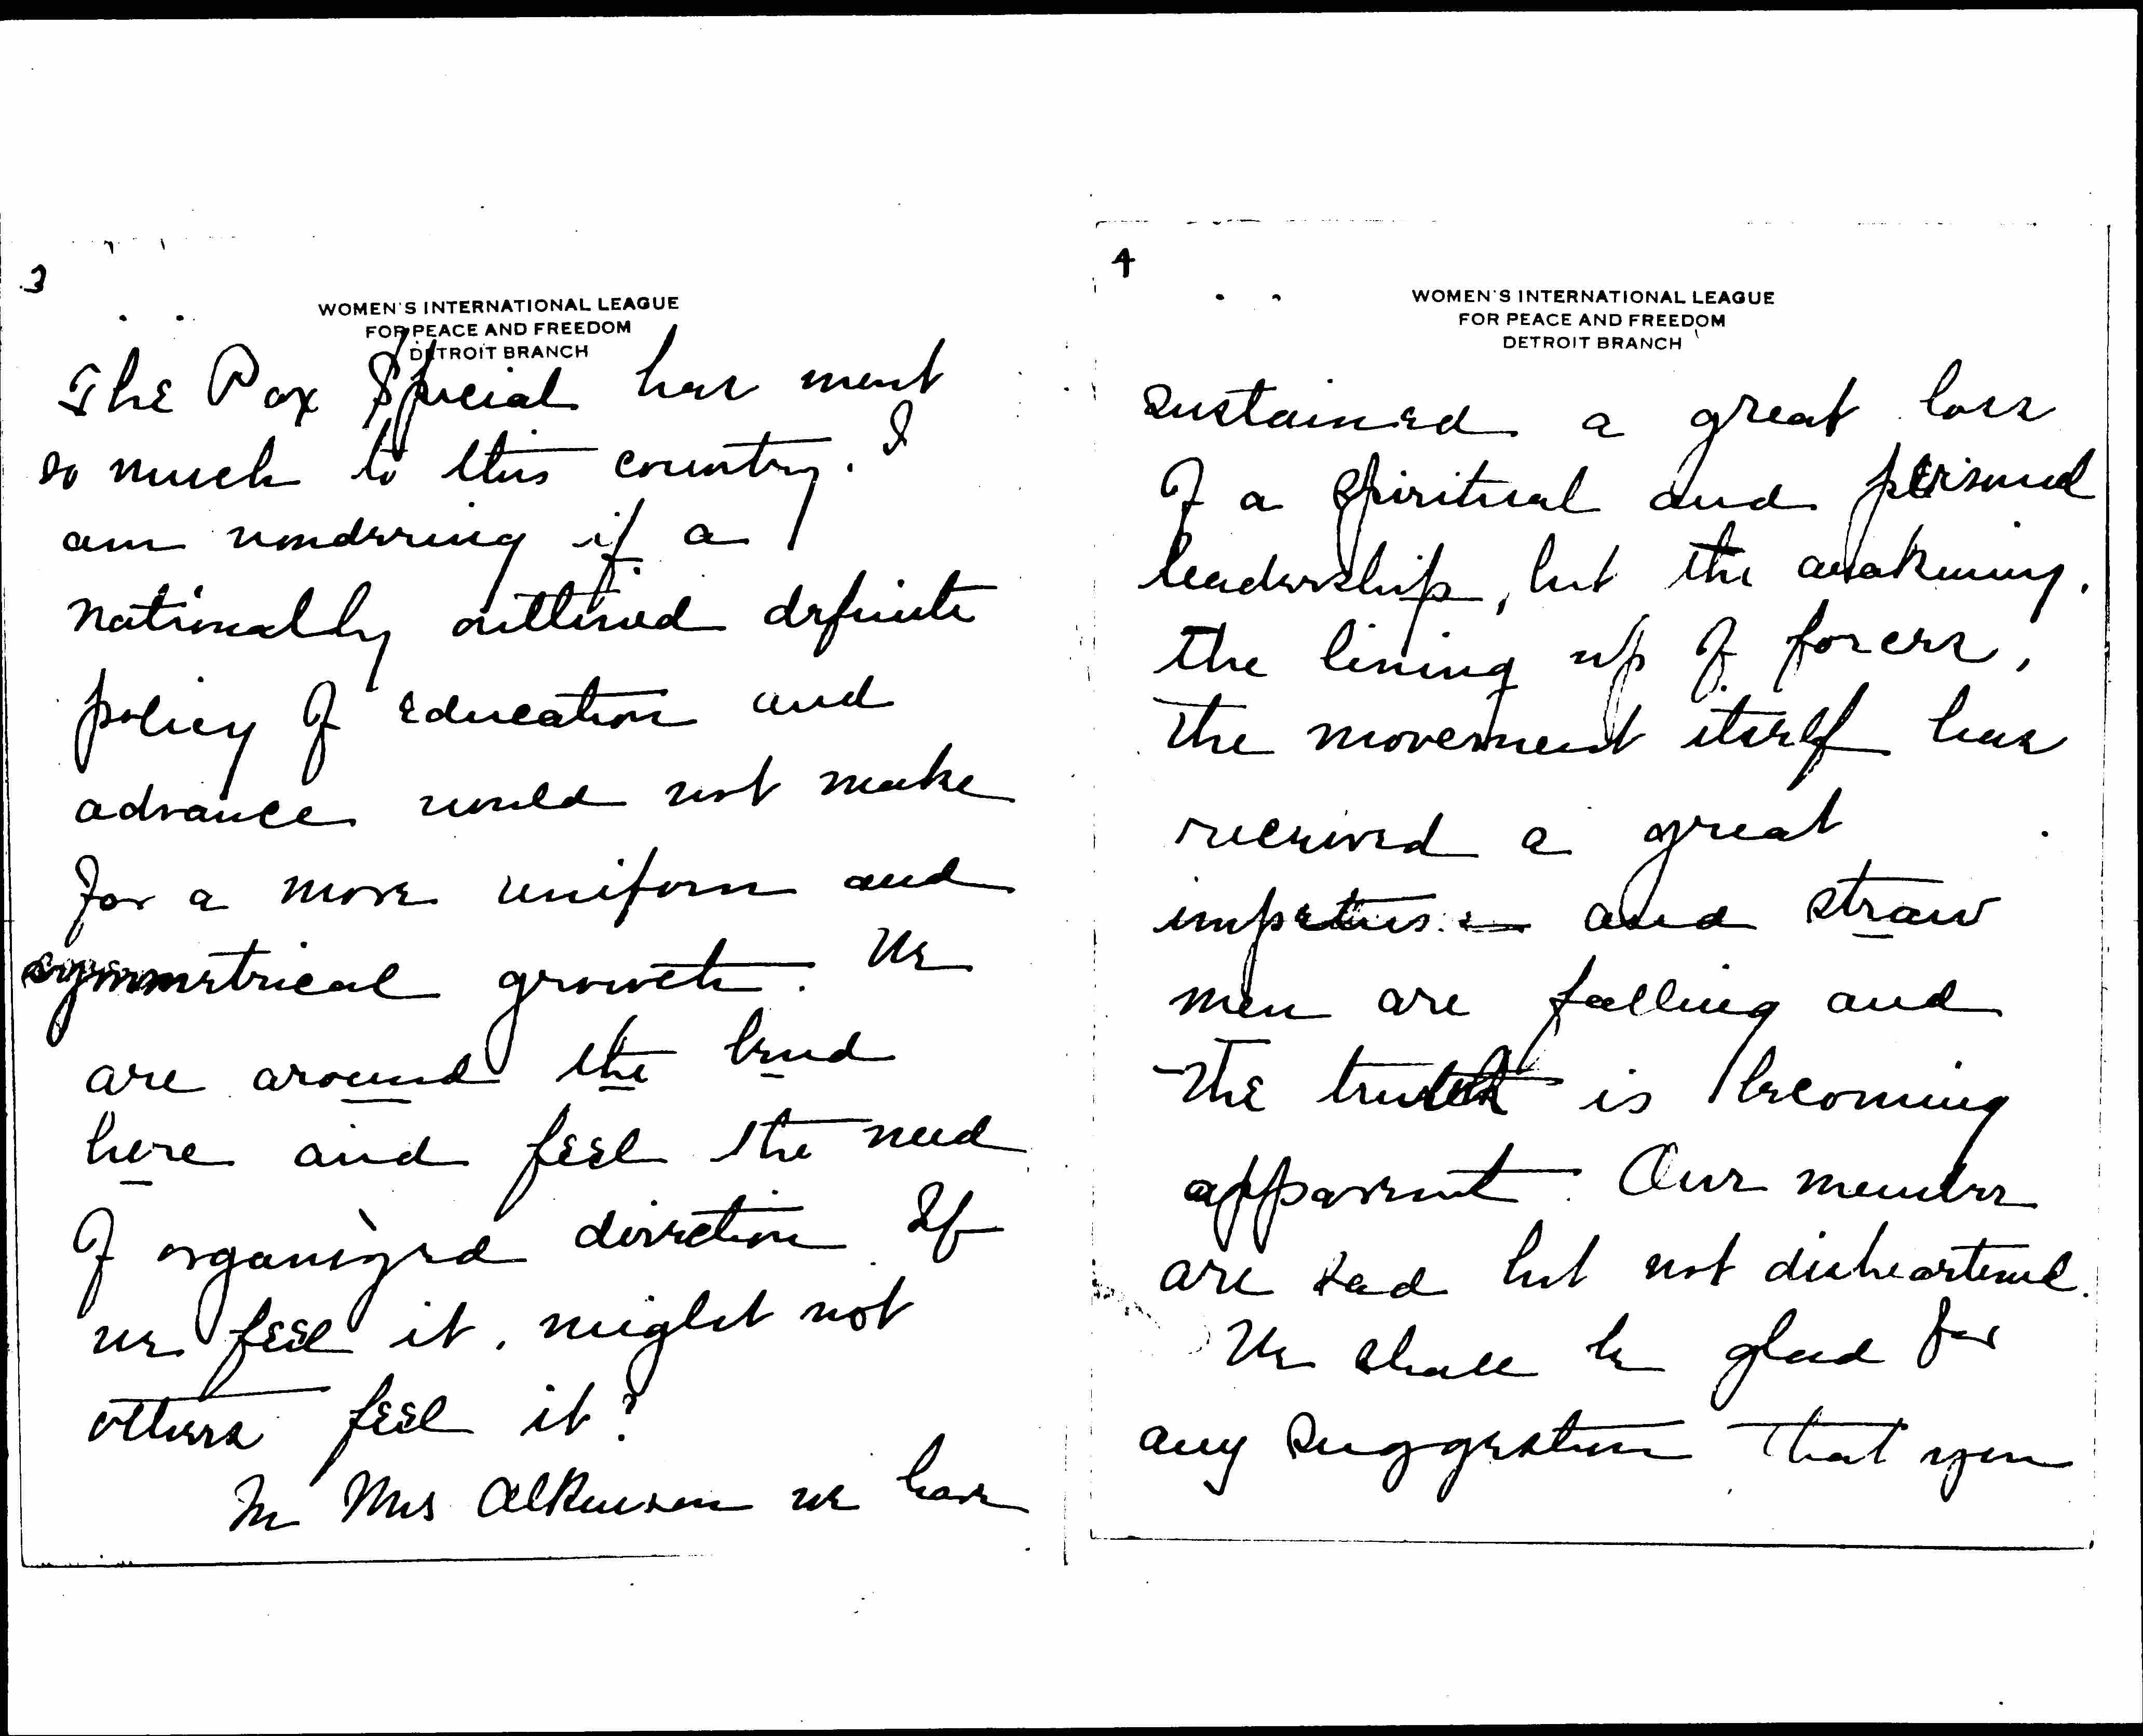 3
WOMEN'S INTERNATIONAL LEAGUE
FOR PEACE AND FREEDOM
DETROIT BRANCH
The Pax Special has ment
so much to this country. I
am wondering if a
nationally outlined definite
policy of education and
advance would not make
for a more uniform and
symmetrical growth. We
are around the bend
here and feel the need
of organized direction. If
we feel it, might not
others feel it?
In Mrs Alkinson we have
4
WOMEN'S INTERNATIONAL LEAGUE
FOR PEACE AND FREEDOM
DETROIT BRANCH
sustained a great loss
of a spiritual and personal
leadership, but the awakening,
the lining up of forces,
the movement itself has
received a great
impetus and straw
men are falling and
the truth is becoming
apparent. Our members
are sad but not disheartened.
We shall be glad for
any suggestion that you